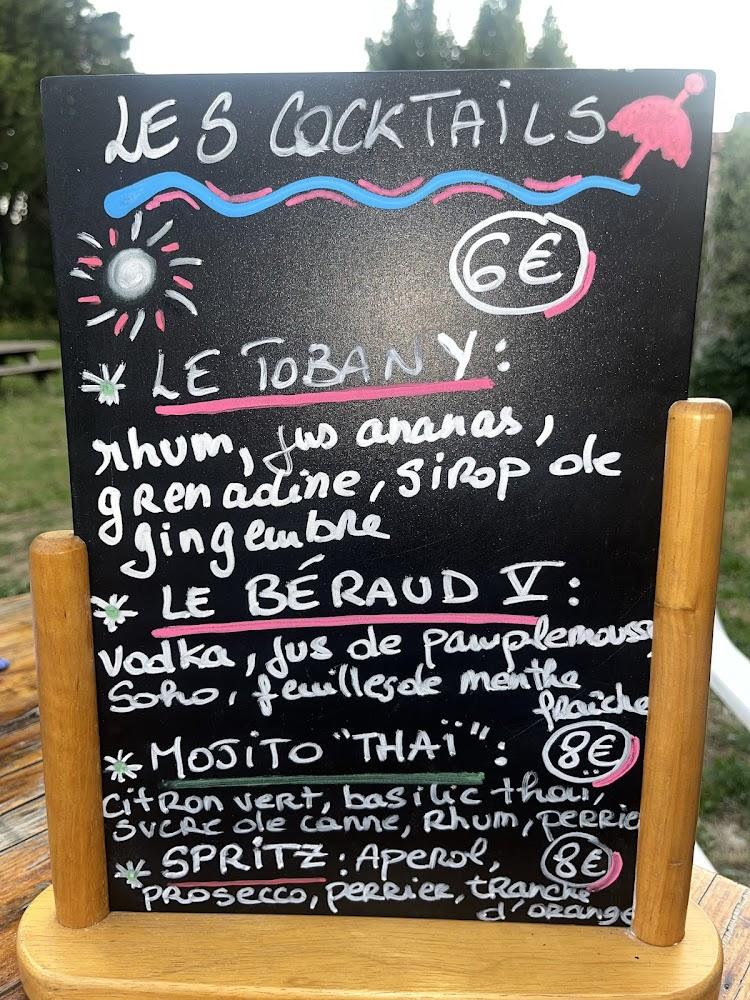 LES COCKTAILS
6€
LE TOBANY:
rhum, jus ananas,
grenadine, sirop de
gingembre
LE BÉRAUD V:
Vodka, jus de pamplemousse
Soho, feuilles de menthe
fraîche
MOJITO "THAÏ": 8€
citron vert, basilic thaï,
sucre de canne, rhum, perrier
SPRITZ: Aperol, 8€
prosecco, perrier, tranche
d'orange